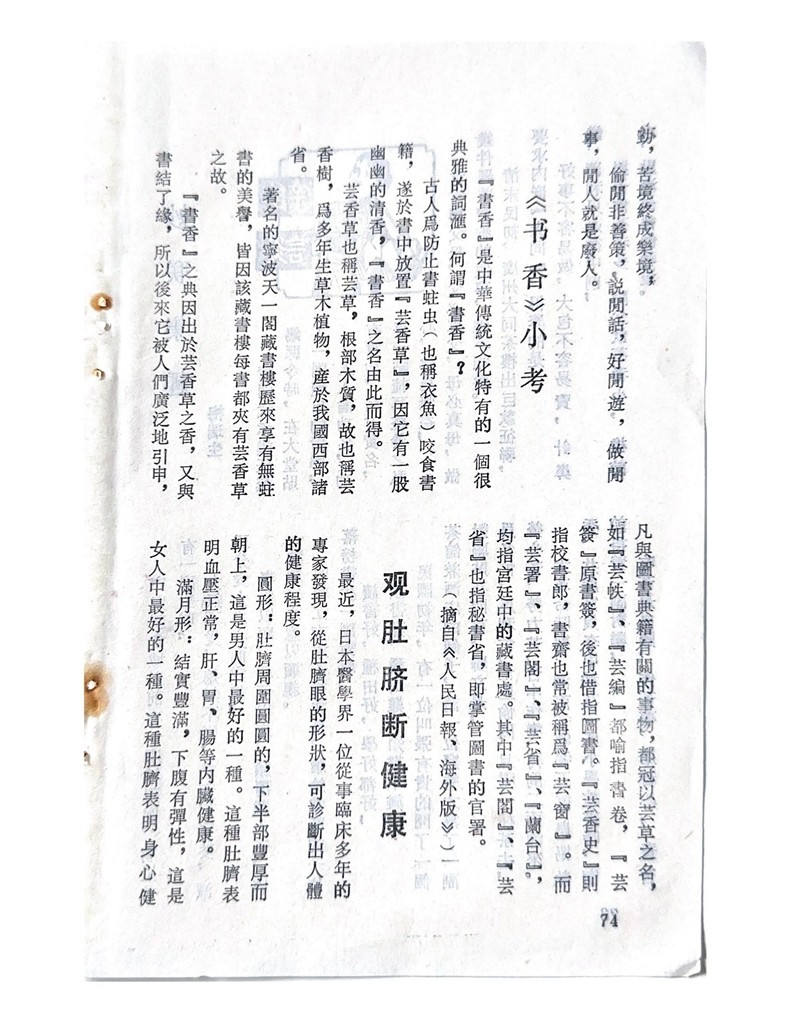 勤，苦境終成樂境，
偷閒非善策，説閒話，好閒遊，做閒
事，閒人就是廢人。
《书香》小考
『書香』是中華傳統文化特有的一個很
典雅的詞滙。何謂『書香』？
古人爲防止書蛀虫（也稱衣魚）咬食書
籍，遂於書中放置『芸香草』，因它有一股
幽幽的清香，『書香』之名由此而得。
芸香草也稱芸草，根部木質，故也稱芸
香樹，爲多年生草木植物，産於我國西部諸
省。
著名的寧波天一閣藏書樓歷來享有無蛀
書的美譽，皆因該藏書樓每書都夾有芸香草
之故。
『書香』之典因出於芸香草之香，又與
書結了緣，所以後來它被人們廣泛地引申，
凡與圖書典籍有關的事物，都冠以芸草之名，
如『芸帙』、『芸編』都喻指書卷，『芸
簽』原書簽，後也借指圖書。『芸香史』則
指校書郎，書齋也常被稱爲『芸窗』。而
『芸署』、『芸閣』、『芸省』、『蘭台』，
均指宮廷中的藏書處。其中『芸閣』、『芸
省』也指秘書省，即掌管圖書的官署。
（摘自《人民日報、海外版》）
观肚脐断健康
最近，日本醫學界一位從事臨床多年的
專家發現，從肚臍眼的形狀，可診斷出人體
的健康程度。
圓形：肚臍周圍圓圓的，下半部豐厚而
朝上，這是男人中最好的一種。這種肚臍表
明血壓正常，肝、胃、腸等内臟健康。
滿月形：結實豐滿，下腹有彈性，這是
女人中最好的一種。這種肚臍表明身心健
74